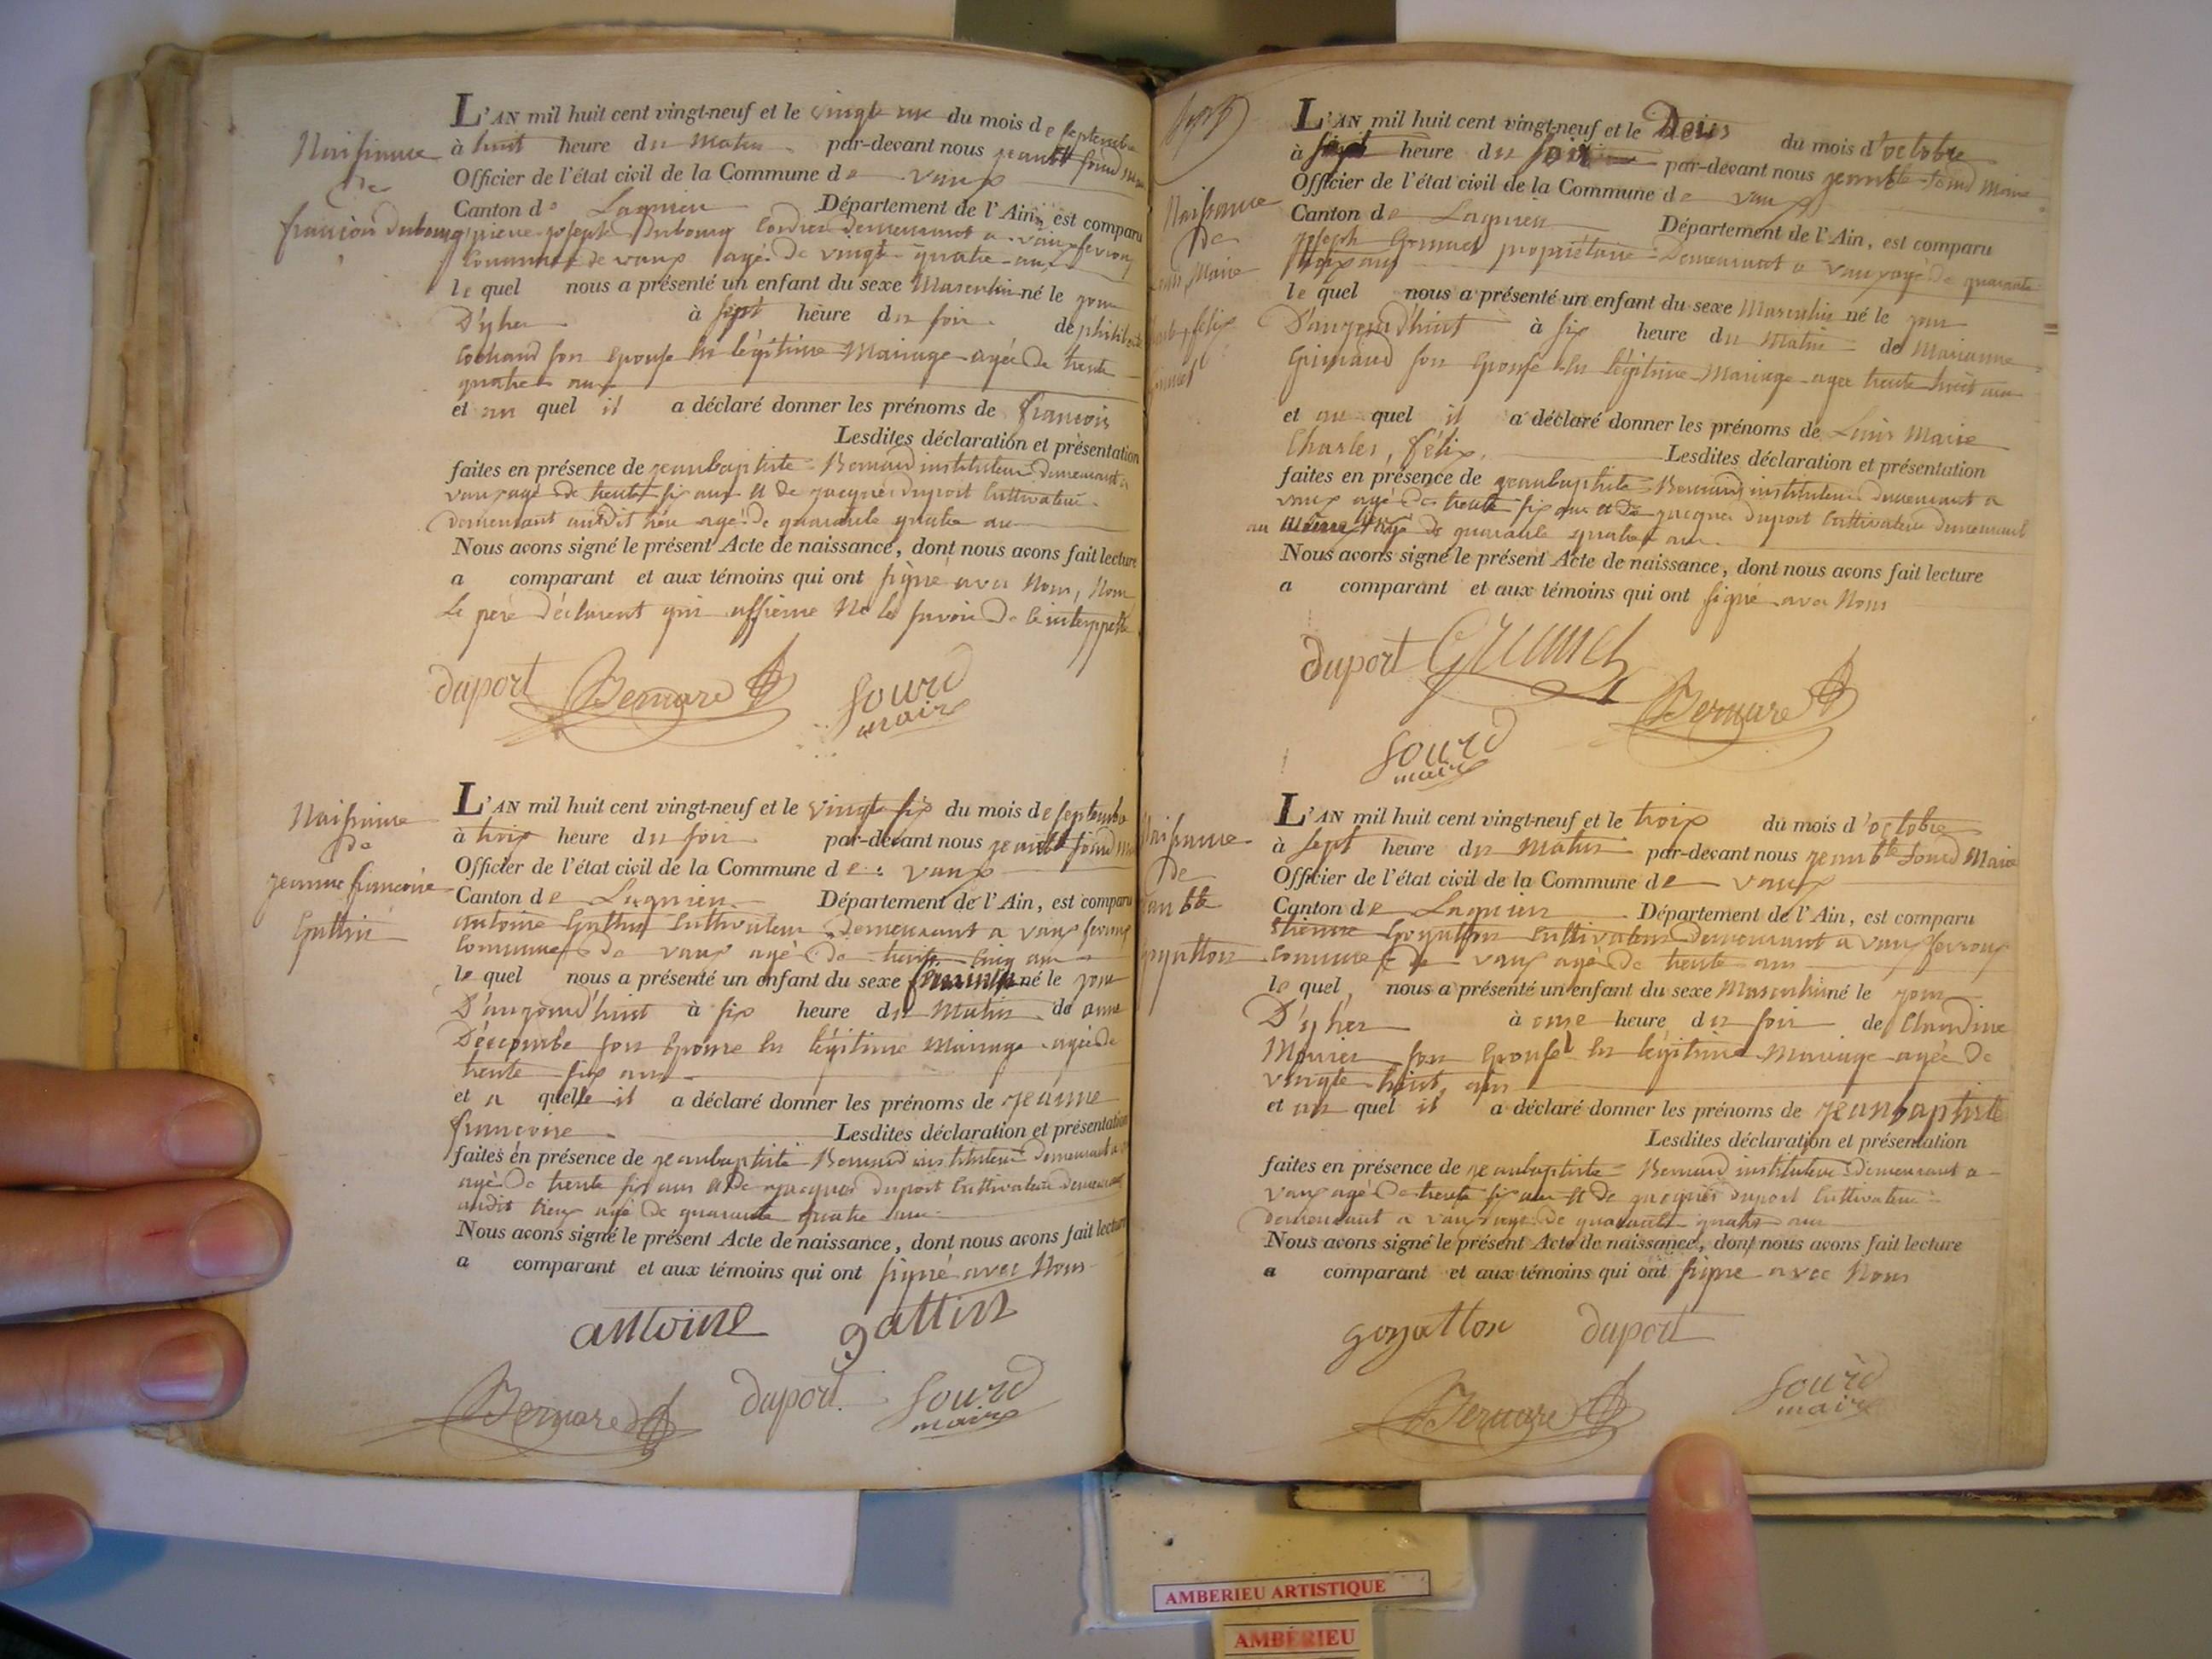 Naissance
de
françois Dubourg
L'AN mil huit cent vingt-neuf et le vingt un du mois de Septembre
à huit heure du Matin par-devant nous jean bte Sourd maire
Officier de l'état civil de la Commune de vaux
Canton de Lagnieu Département de l'Ain, est comparu
pierre joseph Dubourg Cordier demeurant a vaux fevroux
Commune de vaux agé de vingt quatre ans
le quel nous a présenté un enfant du sexe Masculin né le jour
D'yher à sept heure du soir de philiberte
Cochand son Epouse En légitime Mariage agée De trente
quatre ans
et au quel il a déclaré donner les prénoms de françois
Lesdites déclaration et présentation
faites en présence de jeanbaptiste Bernard instituteur Demeurant a
vaux agé de trente six ans et de jacques duport Cultivateur
demeurant audit lieu agé de quarante quatre ans
Nous avons signé le présent Acte de naissance, dont nous avons fait lecture
a comparant et aux témoins qui ont signé avec Nous, Non
Le père Déclarent qui affirme Ne le savoir De ce interppellé
duport Bernard Sourd
maire
Naissance
de
jeanne françoise
Guttin
L'AN mil huit cent vingt-neuf et le vingt six du mois de Septembre
à trois heure du soir par-devant nous jean bte Sourd
Officier de l'état civil de la Commune de vaux
Canton de Lagnieu Département de l'Ain, est comparu
antoine Guttin Cultivateur demeurant a vaux fevroux
Commune de vaux agé de trente Cinq ans
le quel nous a présenté un enfant du sexe feminin né le jour
D'aujourd'huit à six heure du Matin de anne
Décombe son Epouse En légitime Mariage agée De
trente six ans
et a quelle il a déclaré donner les prénoms de jeanne
françoise Lesdites déclaration et présentation
faites en présence de jeanbaptiste Bernard instituteur Demeurant a
agé De trente six ans et De jacques duport Cultivateur demeurant
audit lieu agé de quarante quatre ans
Nous avons signé le présent Acte de naissance, dont nous avons fait lecture
a comparant et aux témoins qui ont signé avec Nous
antoine gattin
Bernard duport Sourd
maire
Naissance
de
Louis Marie
Charles felix
L'AN mil huit cent vingt-neuf et le Deux du mois d'octobre
à sept heure du soir par-devant nous jean bte Sourd Maire
Officier de l'état civil de la Commune de vaux
Canton de Lagnieu Département de l'Ain, est comparu
joseph Grumet propriétaire Demeurant a vaux agé de quarante
ans
le quel nous a présenté un enfant du sexe Masculin né le jour
D'aujourd'huit à six heure du Matin de Marianne
Grimaud son Epouse En légitime Mariage agee trente huit ans
et au quel il a déclaré donner les prénoms de Louis Marie
Charles, félix, Lesdites déclaration et présentation
faites en présence de jeanbaptiste Bernard instituteur demeurant a
vaux agé de trente six ans et de jacques duport Cultivateur demeurant
au agé de quarante quatre ans
Nous avons signé le présent Acte de naissance, dont nous avons fait lecture
a comparant et aux témoins qui ont signé avec Nous
duport Grumet
Bernard
Sourd
maire
Naissance
de
jean bte
goyatton
L'AN mil huit cent vingt-neuf et le trois du mois d'octobre
à sept heure du Matin par-devant nous jean bte Sourd Maire
Officier de l'état civil de la Commune de vaux
Canton de Lagnieu Département de l'Ain, est comparu
Etienne Goyatton Cultivateur demeurant a vaux fevroux
Commune de vaux agé De trente ans
le quel nous a présenté un enfant du sexe Masculin né le jour
D'yher à onze heure du soir de Claudine
Mourier son Epouse En légitime Mariage agée De
vingte huit ans
et au quel il a déclaré donner les prénoms de jeanbaptiste
Lesdites déclaration et présentation
faites en présence de jeanbaptiste Bernard instituteur demeurant a
vaux agé De trente six ans et de jacques duport Cultivateur
demeurant a vaux agé de quarante quatre ans
Nous avons signé le présent Acte de naissance, dont nous avons fait lecture
a comparant et aux témoins qui ont signe avec Nous
goyatton duport
Bernard Sourd
maire
AMBERIEU ARTISTIQUE
AMBÉRIEU